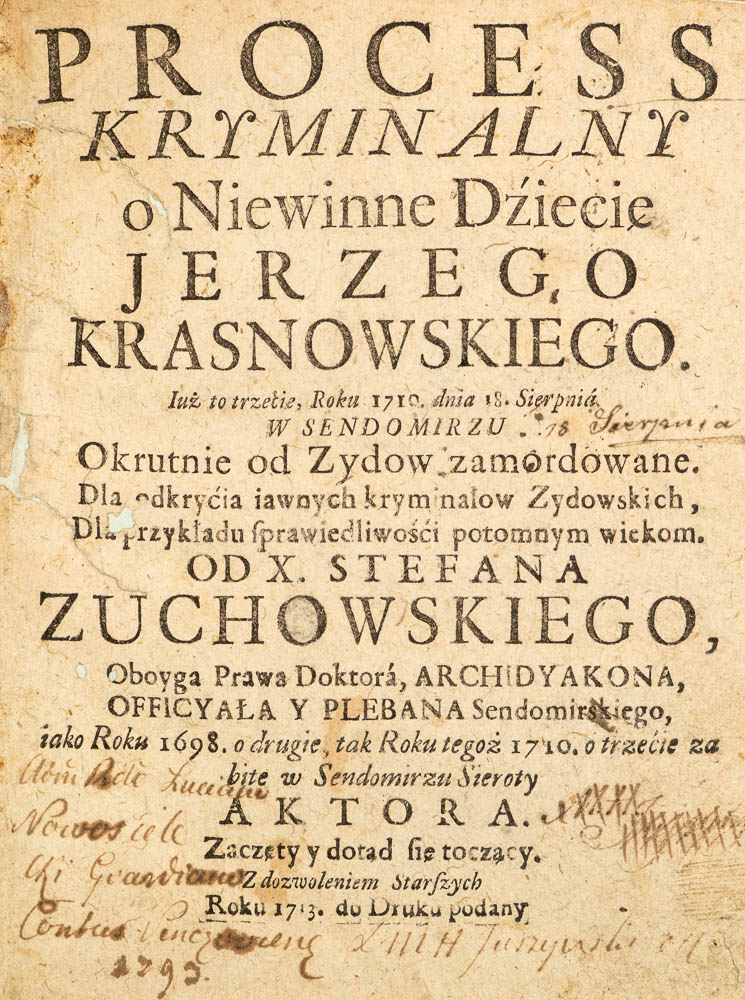 PROCESS
KRYMINALNY
o Niewinne Dźiecię
JERZEGO
KRASNOWSKIEGO.
Iuż to trzećie, Roku 1710. dnia 18. Sierpniá
W SENDOMIRZU 18 Sierpnia
Okrutnie od Zydow zamordowane.
Dla odkryćia iawnych kryminałow Zydowskich,
Dla przykładu ſprawiedliwośći potomnym wiekom.
OD X. STEFANA
ZUCHOWSKIEGO,
Oboyga Prawa Doktorá, ARCHIDYAKONA,
OFFICYAŁA Y PLEBANA Sendomirskiego,
iako Roku 1698. o drugie, tak Roku tegoż 1710. o trzećie za
bite w Sendomirzu Sieroty
AKTORA.
Zaczęty y dotąd się toczący.
Z dozwoleniem Starſzych
Roku 1713. do Druku podany
Nowosiele
cki Gvardiano
1793.